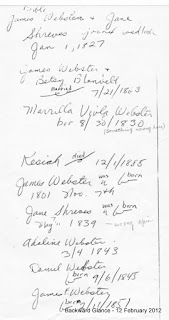 Bible
James Webster & Jane
Shrewes joined wedlock
Jan 1, 1827
James Webster &
Betsy Blauvelt
married 7/21/1863
Marrilla Webster
bor 8/30/1830
(something wrong here)
Kesiah died 12/1/1885
James Webster was born
1801 7th
Jane Shrewes was born
1839
Adaline Webster
3/4 1843
Daniel Webster
born 9/6/1845
James Webster
born
Backward Glance - 12 February 2012